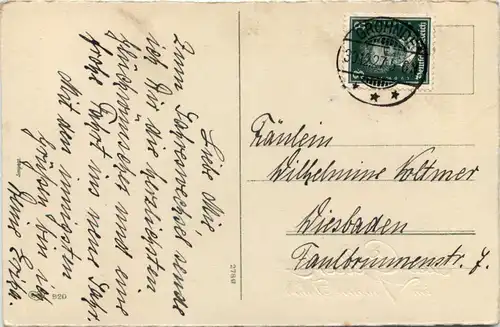 Liebe Mie
Zum Jahreswechsel sende
ich Dir die herzlichsten
Glückwünsche und eine
frohe Fahrt ins neue Jahr.
Mit den innigsten
Grüßen bin ich
Deine
Fräulein
Wilhelmine Voltmer
Wiesbaden
Faulbrunnenstr. 7.
2760
920